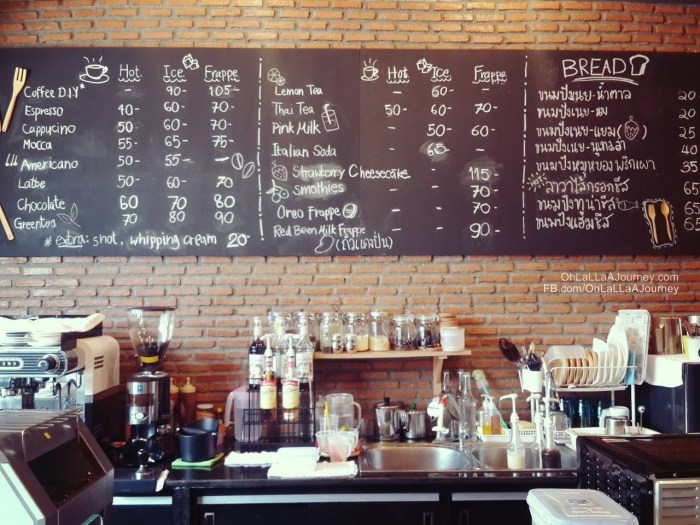 Hot. Ice Frappe
Coffee D.I.Y* - 90- 105-
Espresso 40- 60- 70-
Cappucino 50- 60- 70-
Mocca 55- 65- 75-
Americano 50- 55- -
Latte 50- 60- 70
Chocolate 60 70 80
Greentea 70 80 90
* extra: shot, whipping cream 20-
Hot. Ice Frappe
Lemon Tea - 60- -
Thai Tea 50- 60- 70-
Pink Milk - 50- 60-
Italian Soda - 65-
Strawberry Cheesecake - - 115-
Smothies - - 70-
Oreo Frappe - - 70-
Red Been Milk Frappe - - 90-
(ถั่วแดงปั่น)
BREAD
ขนมปังเนย-น้ำตาล 20
ขนมปังเนย-นม 20-
ขนมปังเนย-แยม 25
ขนมปังเนย-นูเทลล่า
ขนมปังหมูหยองพริกเผา 35
ลาวาไส้กรอกชีส
ขนมปังทูน่าชีส
ขนมปังแฮมชีส 65
OhLaLLaAJourney.com
FB.com/OhLaLLaAJourney